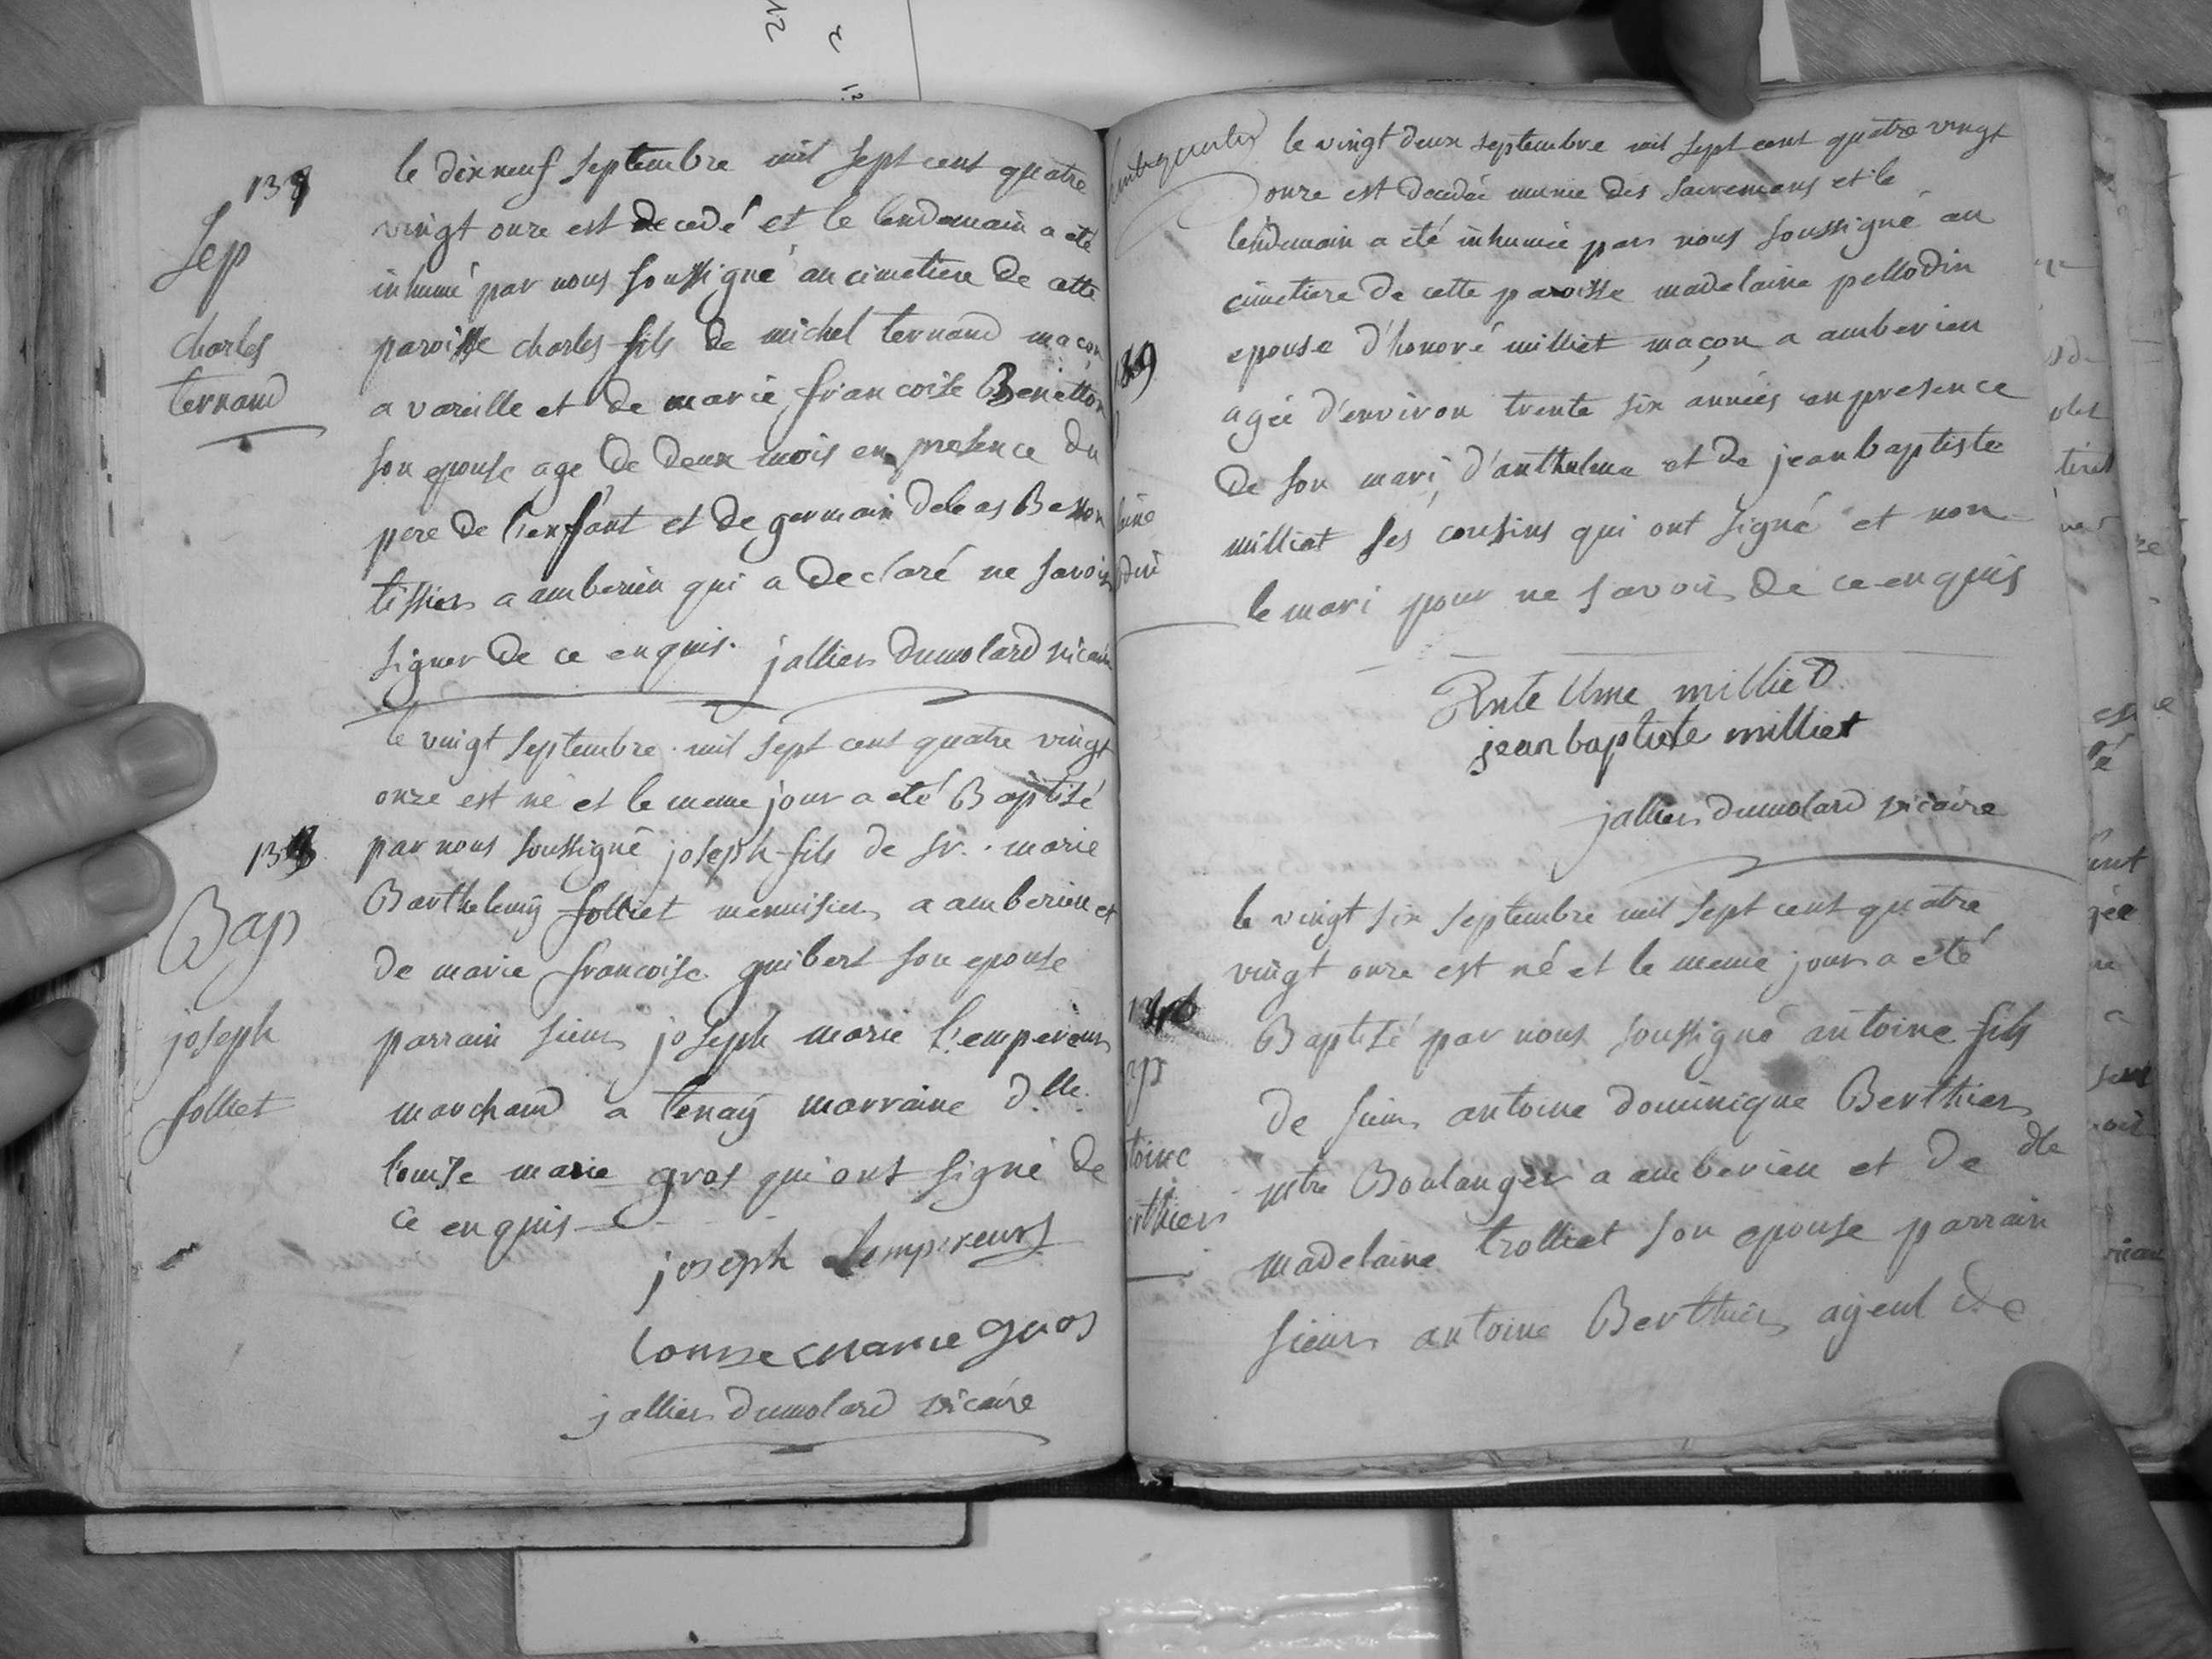 Sep
charles
ternand
le dixneuf septembre mil sept cent quatre
vingt onze est decedé et le lendemain a eté
inhumé par nous soussigné au cimetiere de cette
paroisse charles fils de michel ternand macon
a vareille et de marie francoise Benetton
son epouse age de deux mois en presence du
pere de l'enfant et de germain
tissier a amberieu qui a declaré ne savoir
signer de ce enquis. jallier dumolard vicaire
138
Bap
joseph
folliet
le vingt septembre mil sept cent quatre vingt
onze est né et le meme jour a eté Baptisé
par nous soussigné joseph fils de sr. marie
Barthelemÿ folliet menuisier a amberieu et
de marie francoise guibert son epouse
parrain sieur joseph marie l'empereur
marchand a tenaÿ marraine dlle.
louise marie gros qui ont signé de
ce enquis
joseph Lempereur
Louise marie gros
jallier dumolard vicaire
139
le vingt deux septembre mil sept cent quatre vingt
onze est decedée munie des sacremens et le
lendemain a eté inhumée par nous soussigné au
cimetiere de cette paroisse madelaine pellodin
epouse d'honoré milliet maçon a amberieu
agée d'environ trente six années en presence
de son mari, d'anthelme et de jean baptiste
milliet ses cousins qui ont signé et non
le mari pour ne savoir de ce enquis
Antelme milliet
jean baptiste milliet
jallier dumolard vicaire
140
toine
rthier
le vingt six septembre mil sept cent quatre
vingt onze est né et le meme jour a eté
Baptisé par nous soussigné antoine fils
de sieur antoine dominique Berthier
mtre Boulanger a amberieu et de dlle
madelaine trolliet son epouse parrain
sieur antoine Berthier ayeul de